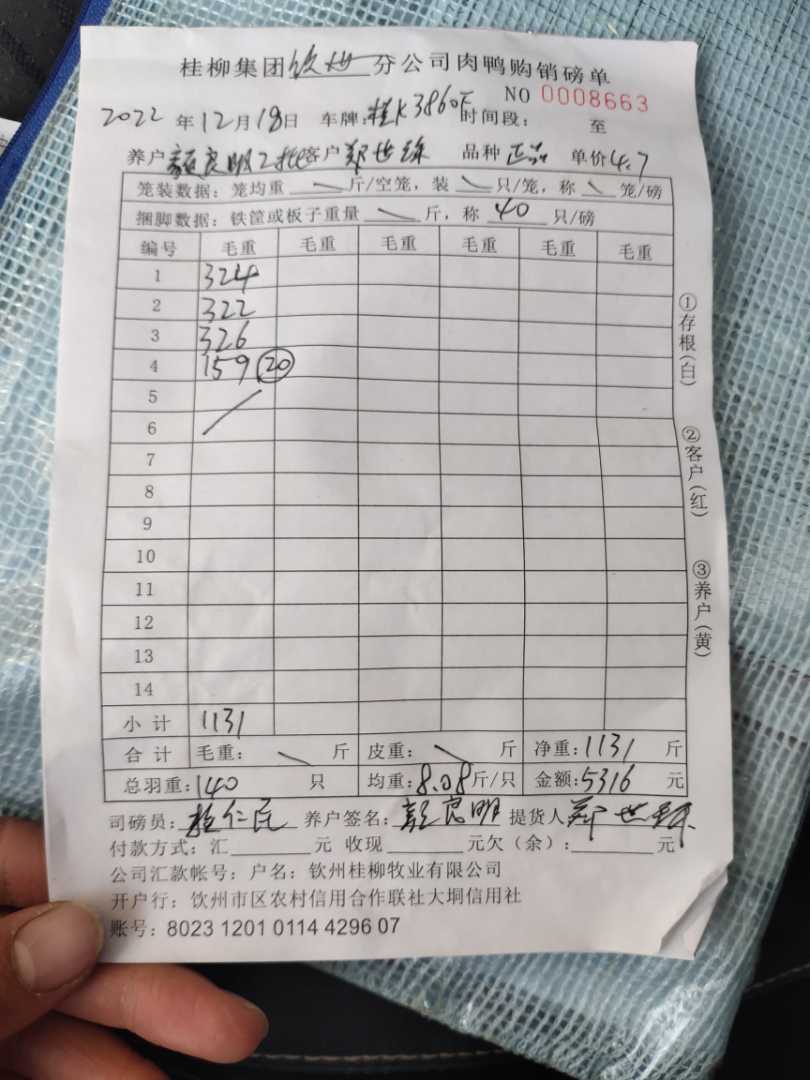 桂柳集团钦州分公司肉鸭购销磅单
NO 0008663
2022年12月18日 车牌:桂K3860F 时间段: 至
养户颜良明2批 客户郑世 品种正品 单价4.7
笼装数据:笼均重 斤/空笼,装 只/笼,称 笼/磅
捆脚数据:铁筐或板子重量 斤,称 40 只/磅
编号 毛重 毛重 毛重 毛重 毛重 毛重
1 324
2 322
3 326
4 159 20
5
6
7
8
9
10
11
12
13
14
小计 1131
合计 毛重: 斤 皮重: 斤 净重:1131 斤
总羽重:140 只 均重:8.08斤/只 金额:5316 元
司磅员:仁民 养户签名:颜良明 提货人郑世
付款方式:汇 元 收现 元欠(余): 元
公司汇款帐号:户名:钦州桂柳牧业有限公司
开户行:钦州市区农村信用合作联社大垌信用社
账号:8023 1201 0114 4296 07
①存根(白)
②客户(红)
③养户(黄)